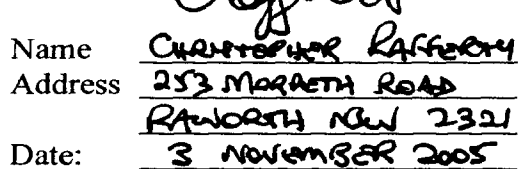 Name CHRISTOPHER RAFFERTY
Address 253 MORPETH ROAD
RAWORTH NSW 2321
Date: 3 NOVEMBER 2005